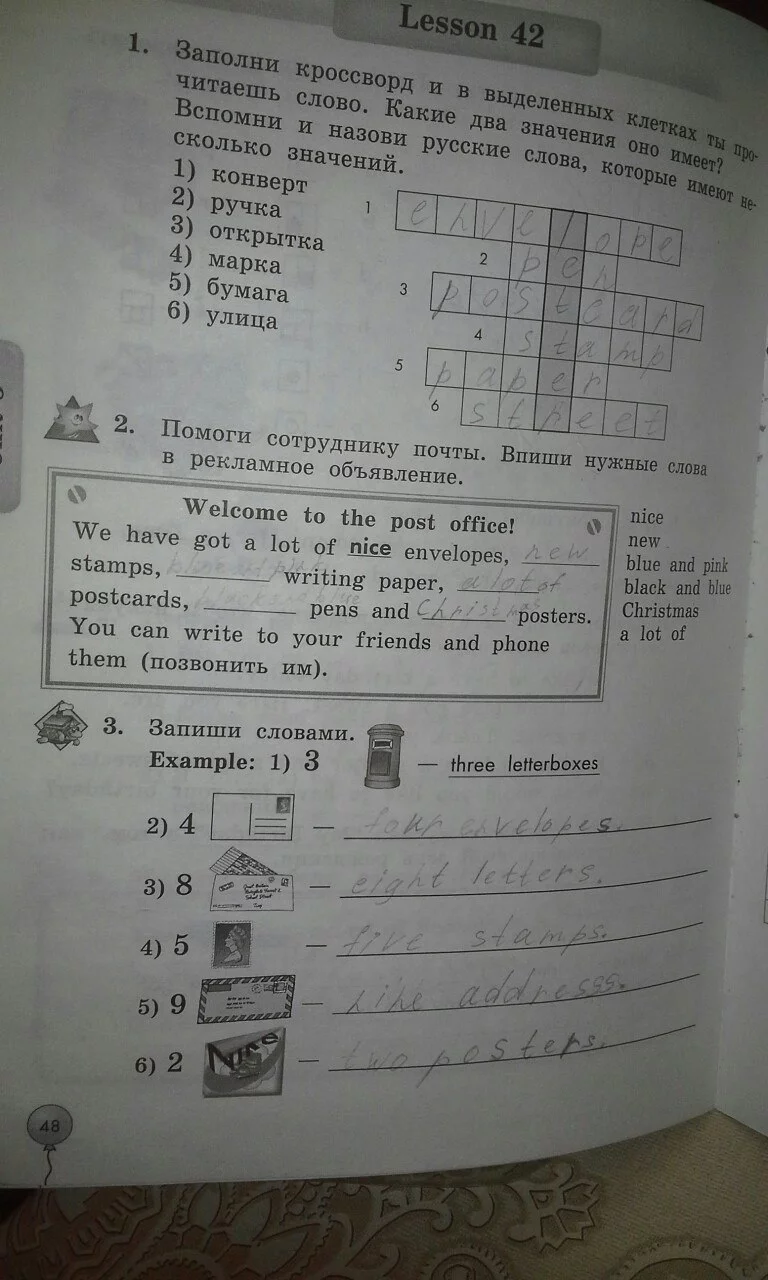 Lesson 42
1. Заполни кроссворд и в выделенных клетках ты про-
читаешь слово. Какие два значения оно имеет?
Вспомни и назови русские слова, которые имеют не-
сколько значений.
1) конверт
2) ручка
3) открытка
4) марка
5) бумага
6) улица
1 envelope
2 pen
3 postcard
4 stamp
5 paper
6 street
2. Помоги сотруднику почты. Впиши нужные слова
в рекламное объявление.
Welcome to the post office!
We have got a lot of nice envelopes, new
stamps, blue and pink writing paper, a lot of
postcards, black and blue pens and Christmas posters.
You can write to your friends and phone
them (позвонить им).
nice
new
blue and pink
black and blue
Christmas
a lot of
3. Запиши словами.
Example: 1) 3 — three letterboxes
2) 4 — four envelopes.
3) 8 — eight letters.
4) 5 — five stamps.
5) 9 — nine addresses.
6) 2 NICE — two posters.
48